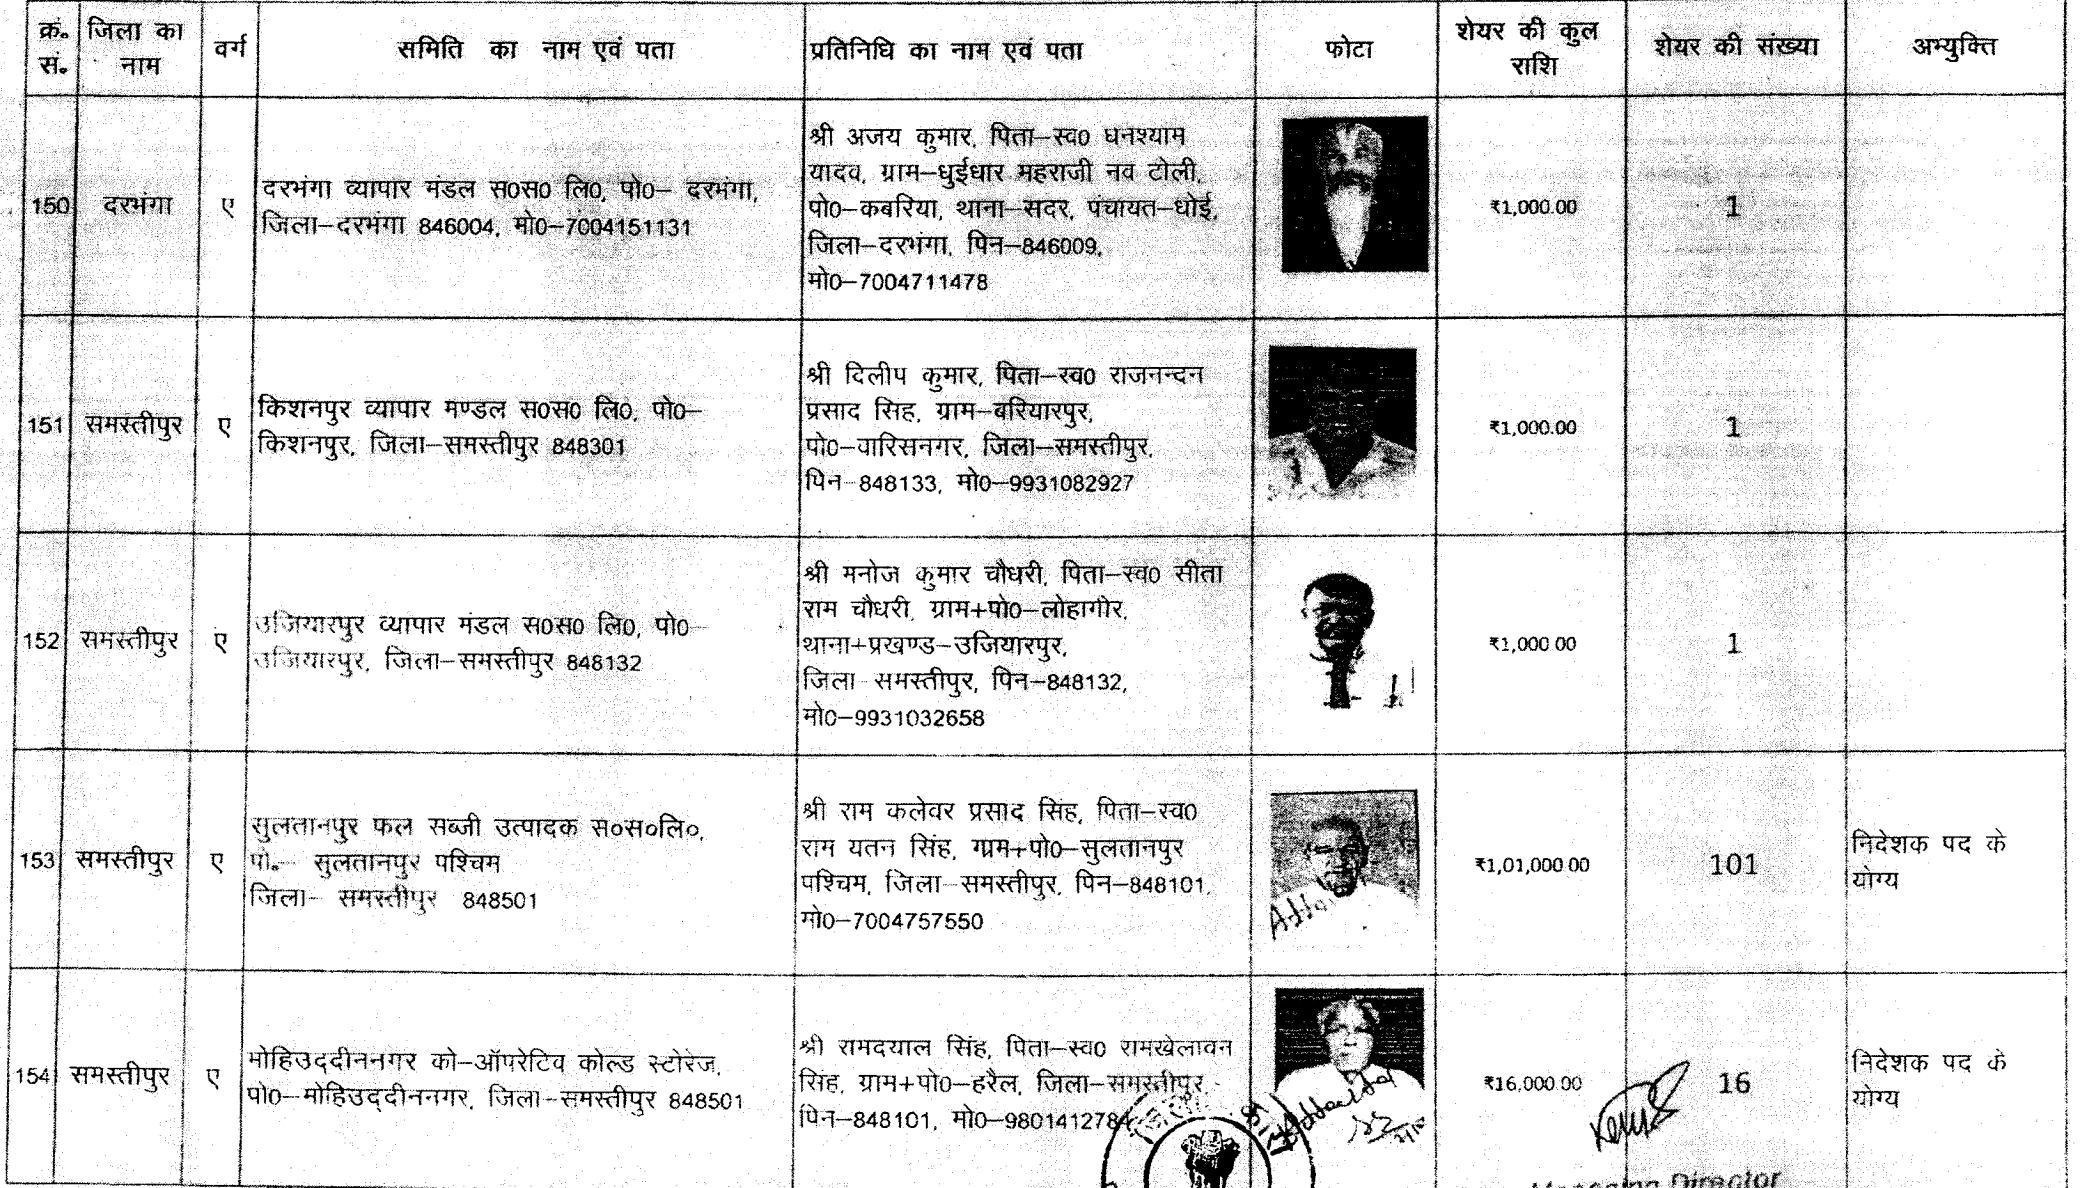 क्रं. सं. जिला का नाम वर्ग समिति का नाम एवं पता प्रतिनिधि का नाम एवं पता फोटा शेयर की कुल राशि शेयर की संख्या अभ्युक्ति
150 दरभंगा ए
दरभंगा व्यापार मंडल स0स0 लि0, पो0– दरभंगा,
जिला–दरभंगा 846004, मो0–7004151131
श्री अजय कुमार, पिता–स्व0 घनश्याम
यादव, ग्राम–धुईधार महराजी नव टोली,
पो0–कबरिया, थाना–सदर, पंचायत–धोई,
जिला–दरभंगा, पिन–846009,
मो0–7004711478
₹1,000.00 1
151 समस्तीपुर ए
किशनपुर व्यापार मण्डल स0स0 लि0, पो0–
किशनपुर, जिला–समस्तीपुर 848301
श्री दिलीप कुमार, पिता–स्व0 राजनन्दन
प्रसाद सिंह, ग्राम–बरियारपुर,
पो0–वारिसनगर, जिला–समस्तीपुर,
पिन–848133, मो0–9931082927
₹1,000.00 1
152 समस्तीपुर ए
उजियारपुर व्यापार मंडल स0स0 लि0, पो0–
उजियारपुर, जिला–समस्तीपुर 848132
श्री मनोज कुमार चौधरी, पिता–स्व0 सीता
राम चौधरी, ग्राम+पो0–लोहागीर,
थाना+प्रखण्ड–उजियारपुर,
जिला–समस्तीपुर, पिन–848132,
मो0–9931032658
₹1,000.00 1
153 समस्तीपुर ए
सुलतानपुर फल सब्जी उत्पादक स०स०लि०,
पो.– सुलतानपुर पश्चिम
जिला– समस्तीपुर 848501
श्री राम कलेवर प्रसाद सिंह, पिता–स्व0
राम यतन सिंह, ग्राम+पो0–सुलतानपुर
पश्चिम, जिला–समस्तीपुर, पिन–848101,
मो0–7004757550
₹1,01,000.00 101
निदेशक पद के
योग्य
154 समस्तीपुर ए
मोहिउद्दीननगर को–ऑपरेटिव कोल्ड स्टोरेज,
पो0–मोहिउद्दीननगर, जिला–समस्तीपुर 848501
श्री रामदयाल सिंह, पिता–स्व0 रामखेलावन
सिंह, ग्राम+पो0–हरैल, जिला–समस्तीपुर,
पिन–848101, मो0–9801412784
₹16,000.00 16
निदेशक पद के
योग्य
Managing Director